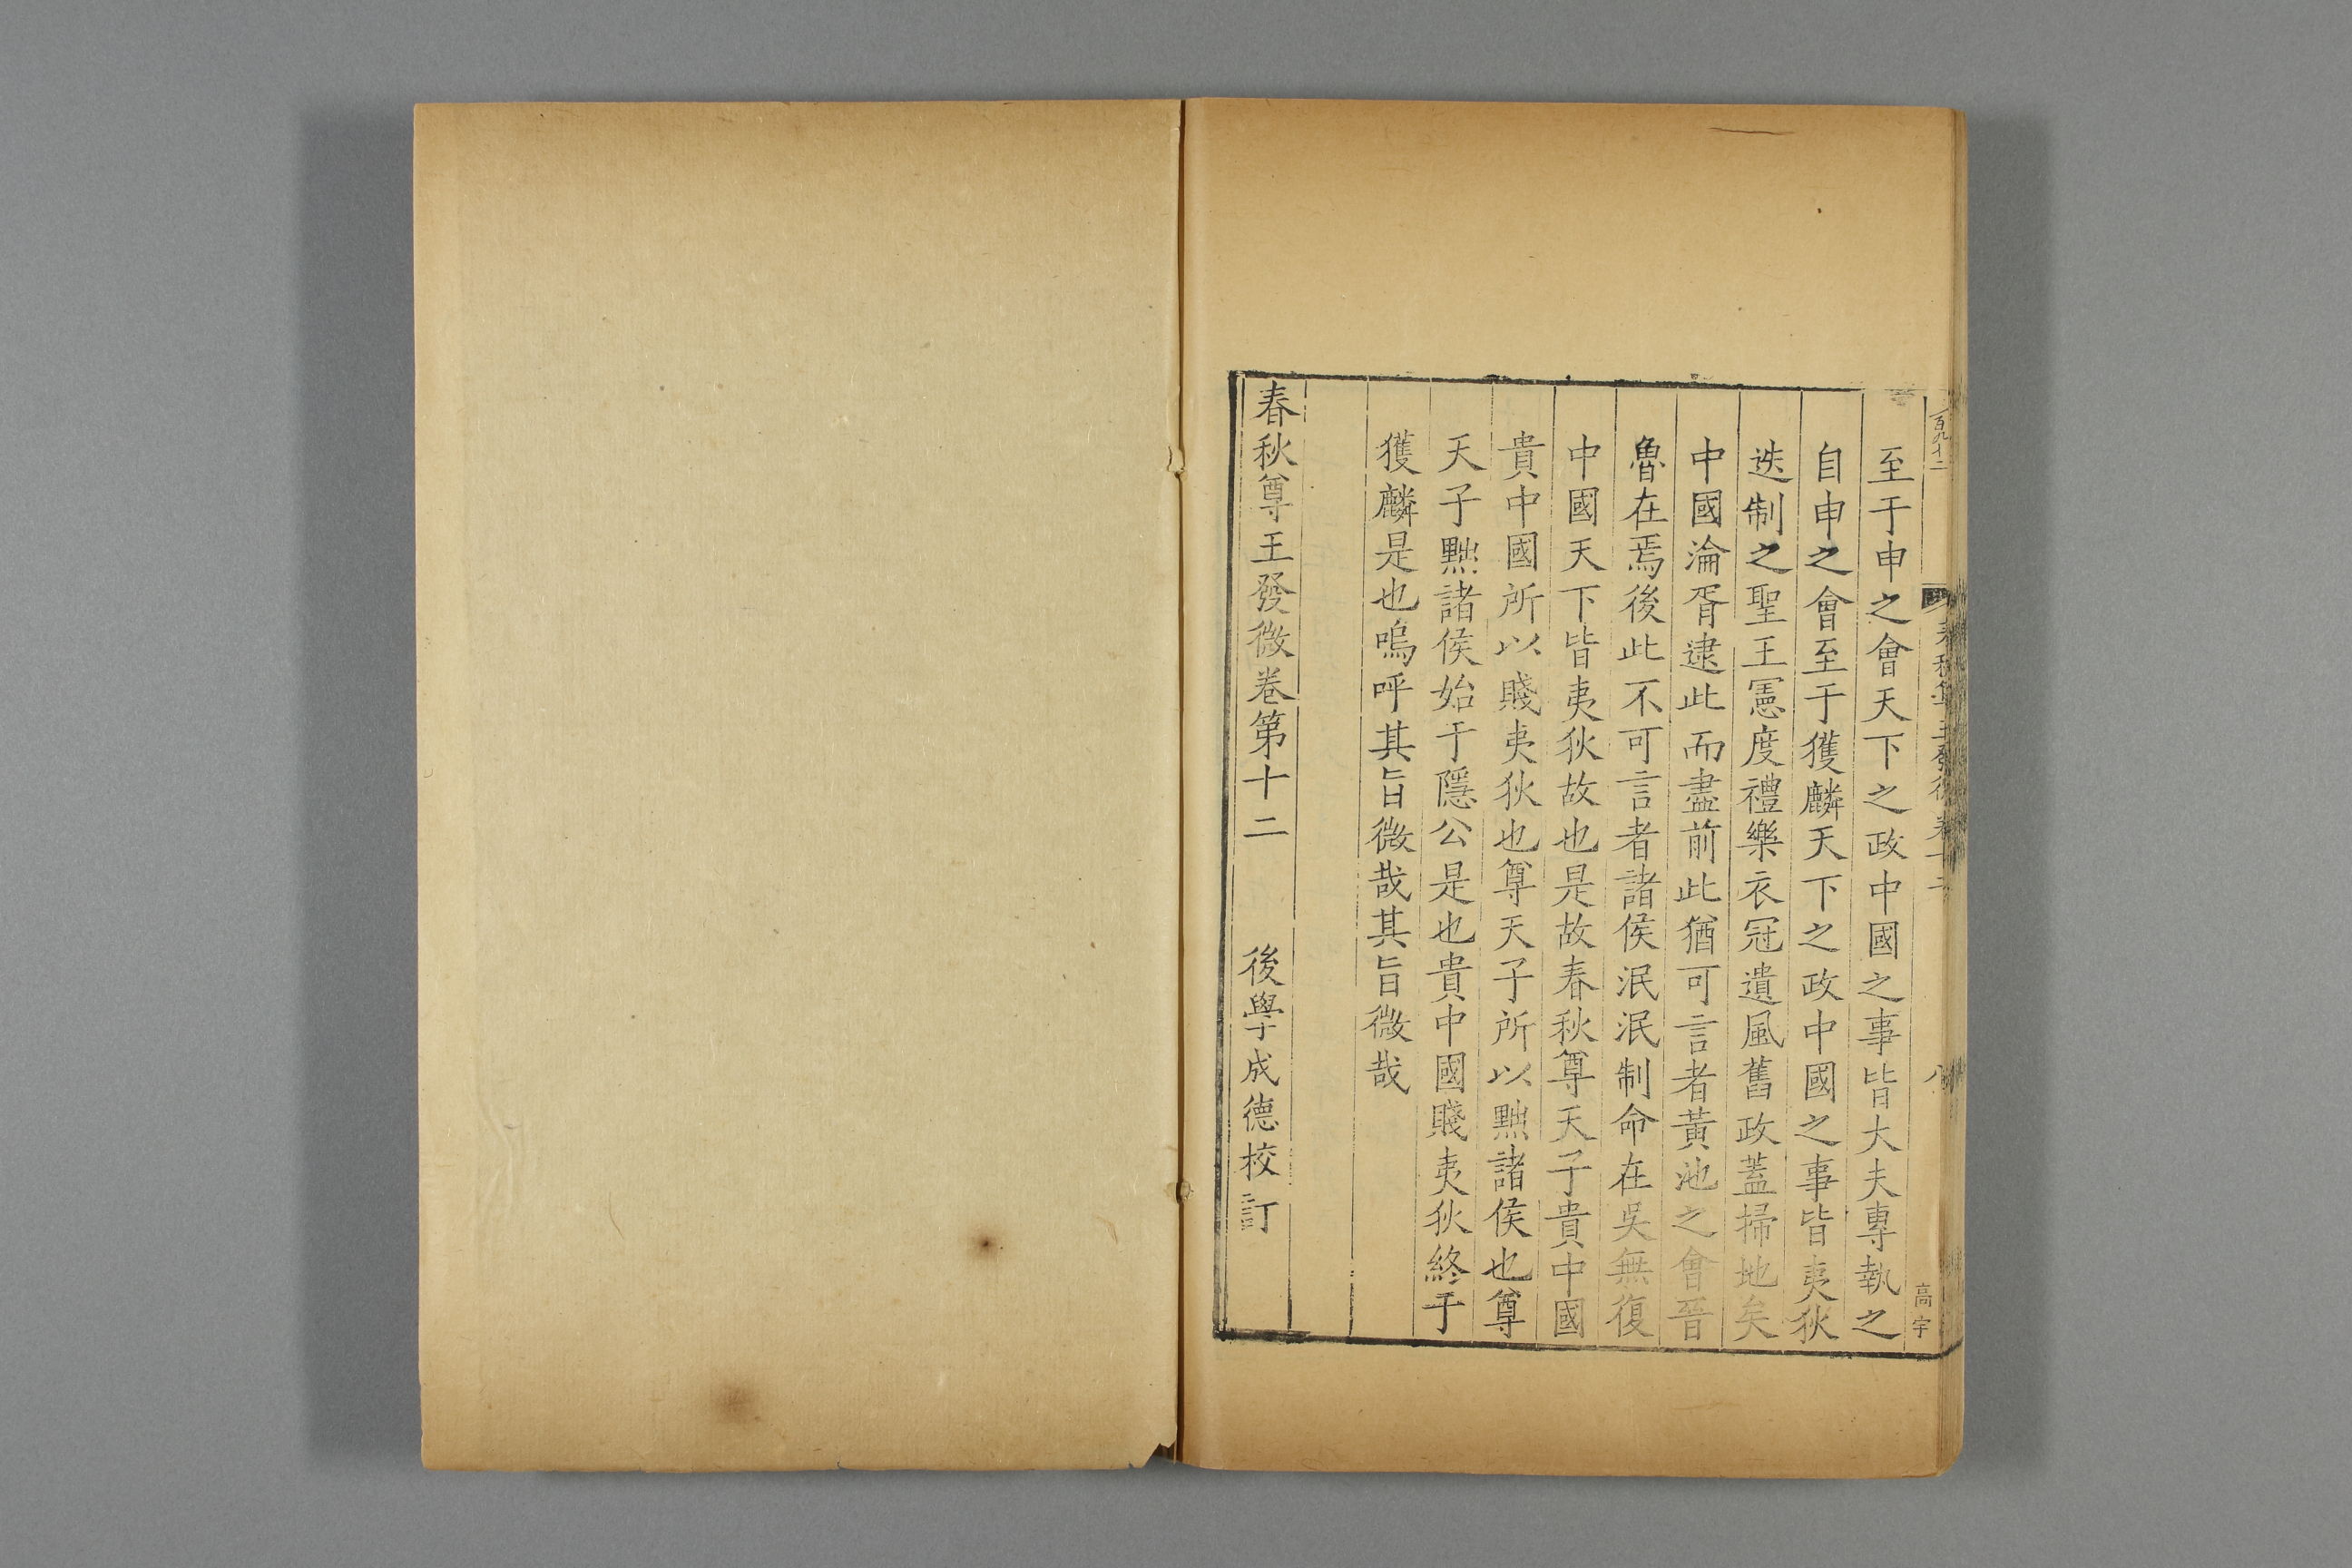 至于申之會天下之政中國之事皆大夫專執之
自申之會至于獲麟天下之政中國之事皆夷狄
迭制之聖王憲度禮樂衣冠遺風舊政蓋掃地矣
中國淪胥逮此而盡前此猶可言者黃池之會晉
魯在焉後此不可言者諸侯泯泯制命在吳無復
中國天下皆夷狄故也是故春秋尊天子貴中國
貴中國所以賤夷狄也尊天子所以黜諸侯也尊
天子黜諸侯始于隱公是也貴中國賤夷狄終于
獲麟是也嗚呼其旨微哉其旨微哉
春秋尊王發微卷第十二 後學成德校訂
高宇